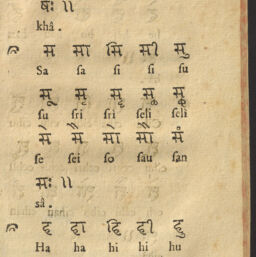 षः ॥
khâ.
स सा सि सी सु
Sa ſa ſi ſi ſu
सू सृ सॄ सॢ सॣ
ſu ſri ſri ſeli ſeli
से सै सो सौ सं
ſe ſei ſo ſau ſan
सः ॥
sâ.
ह हा हि ही हु
Ha ha hi hi hu